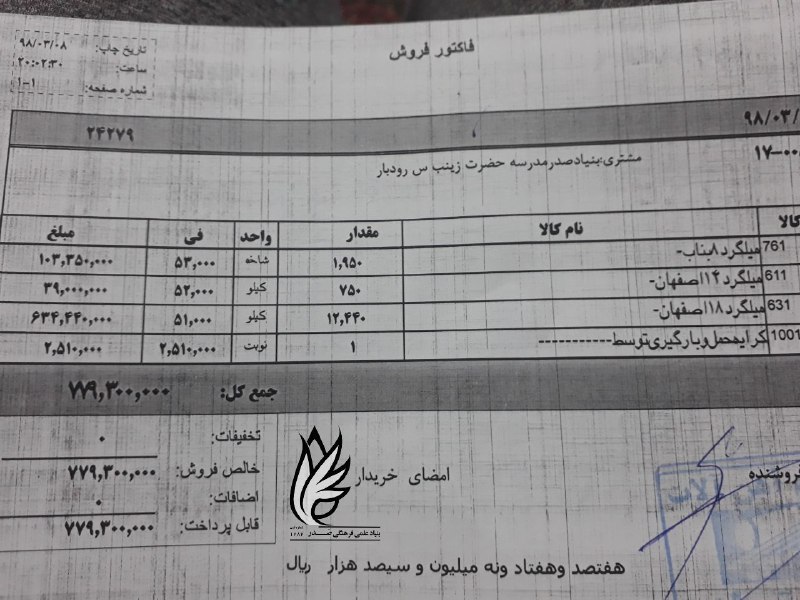 فاکتور فروش
تاریخ چاپ: ۹۸/۰۳/۰۸
ساعت: ۲۰:۰۲:۳۰
شماره صفحه: ۱-۱
۹۸/۰۳/ ۲۴۲۷۹
۱۷-۰۰ مشتری:بنیادصدرمدرسه حضرت زینب س رودبار
کالا نام کالا مقدار واحد فی مبلغ
761 میلگرد۸بناب- ۱,۹۵۰ شاخه ۵۳,۰۰۰ ۱۰۳,۳۵۰,۰۰۰
611 میلگرد۱۴اصفهان- ۷۵۰ کیلو ۵۲,۰۰۰ ۳۹,۰۰۰,۰۰۰
631 میلگرد۱۸اصفهان- ۱۲,۴۴۰ کیلو ۵۱,۰۰۰ ۶۳۴,۴۴۰,۰۰۰
1001 کرایه‌حمل‌وبارگیری‌توسط----------- ۱ نوبت ۲,۵۱۰,۰۰۰ ۲,۵۱۰,۰۰۰
جمع کل: ۷۷۹,۳۰۰,۰۰۰
تخفیفات: ۰
خالص فروش: ۷۷۹,۳۰۰,۰۰۰
اضافات: ۰
قابل پرداخت: ۷۷۹,۳۰۰,۰۰۰
فروشنده امضای خریدار
بنیاد علمی فرهنگی صدر
هفتصد وهفتاد ونه میلیون و سیصد هزار ریال